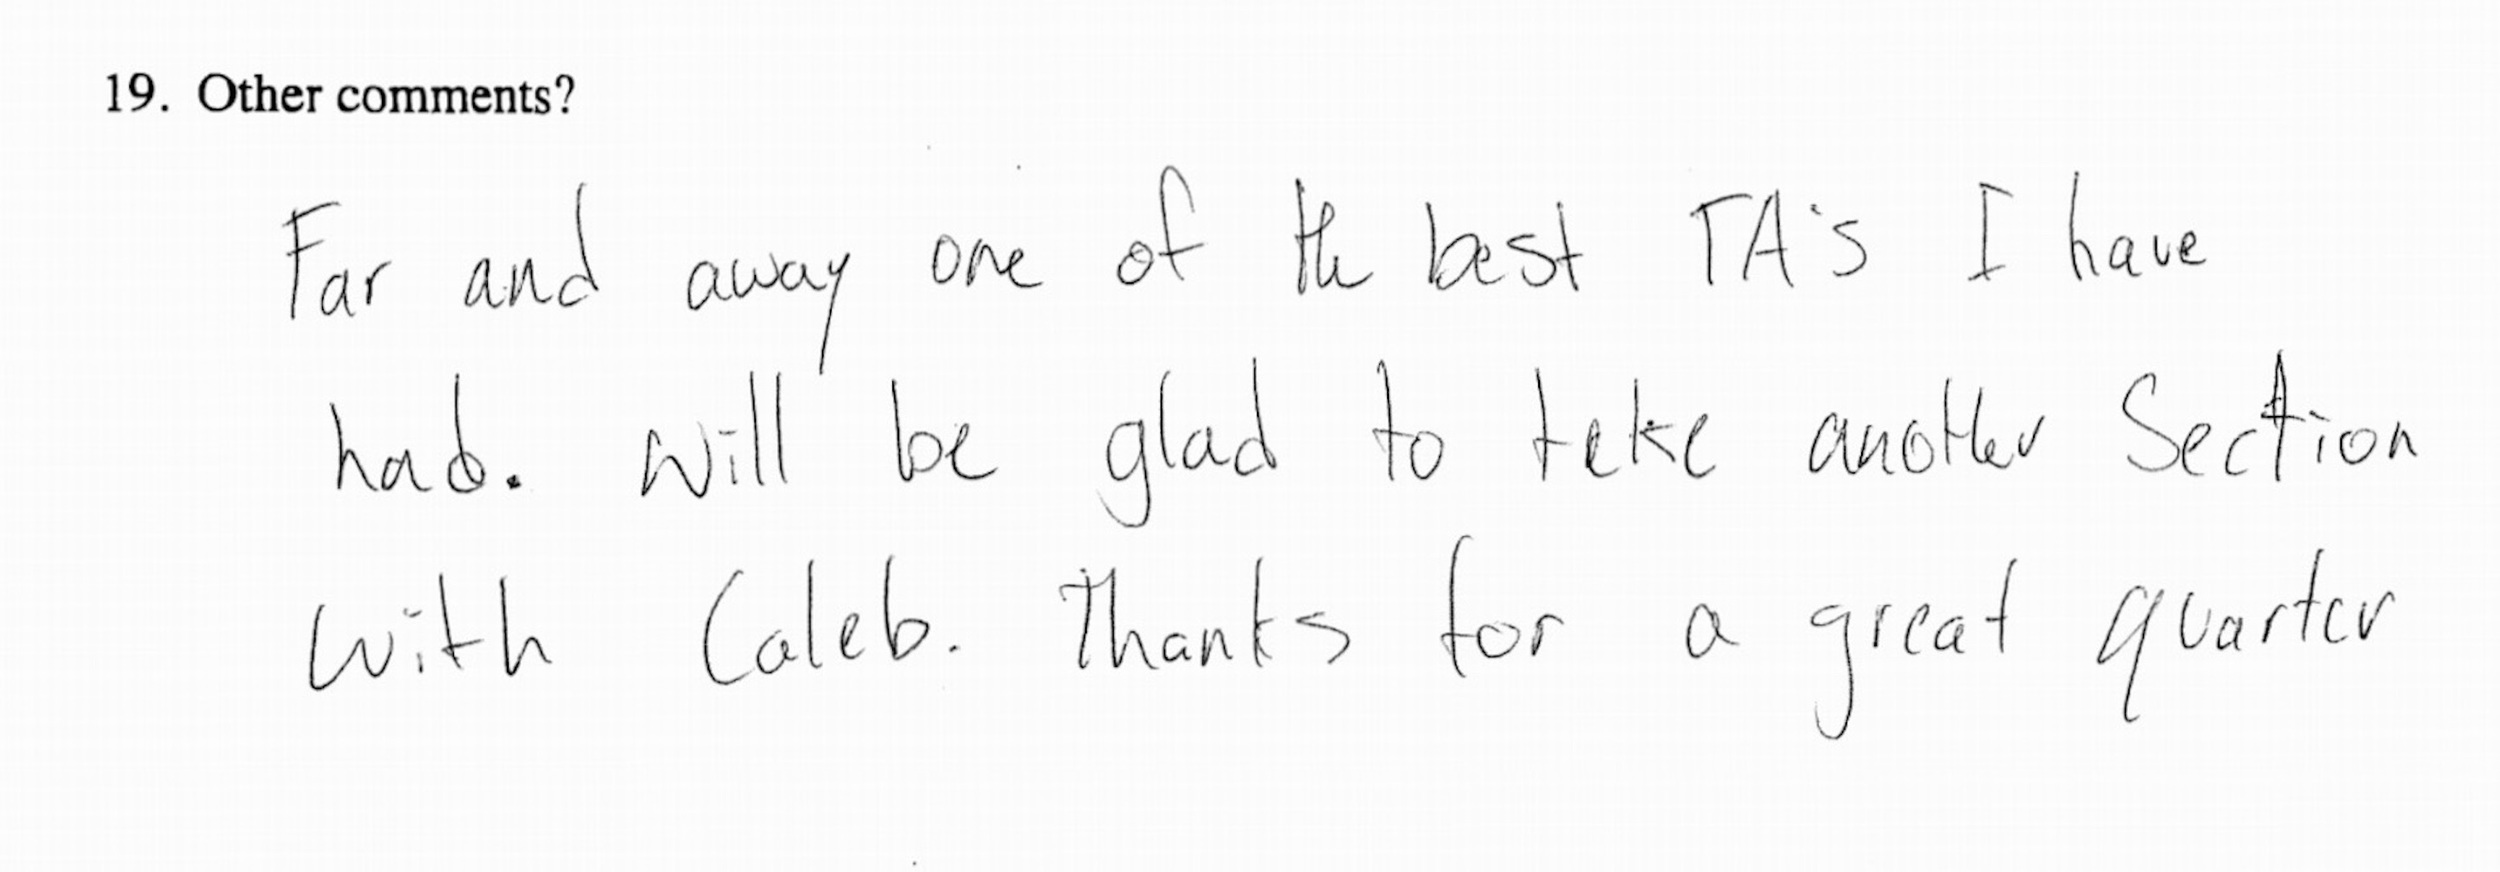 19. Other comments?
Far and away one of the best TA's I have
had. Will be glad to take another Section
with Caleb. Thanks for a great quarter